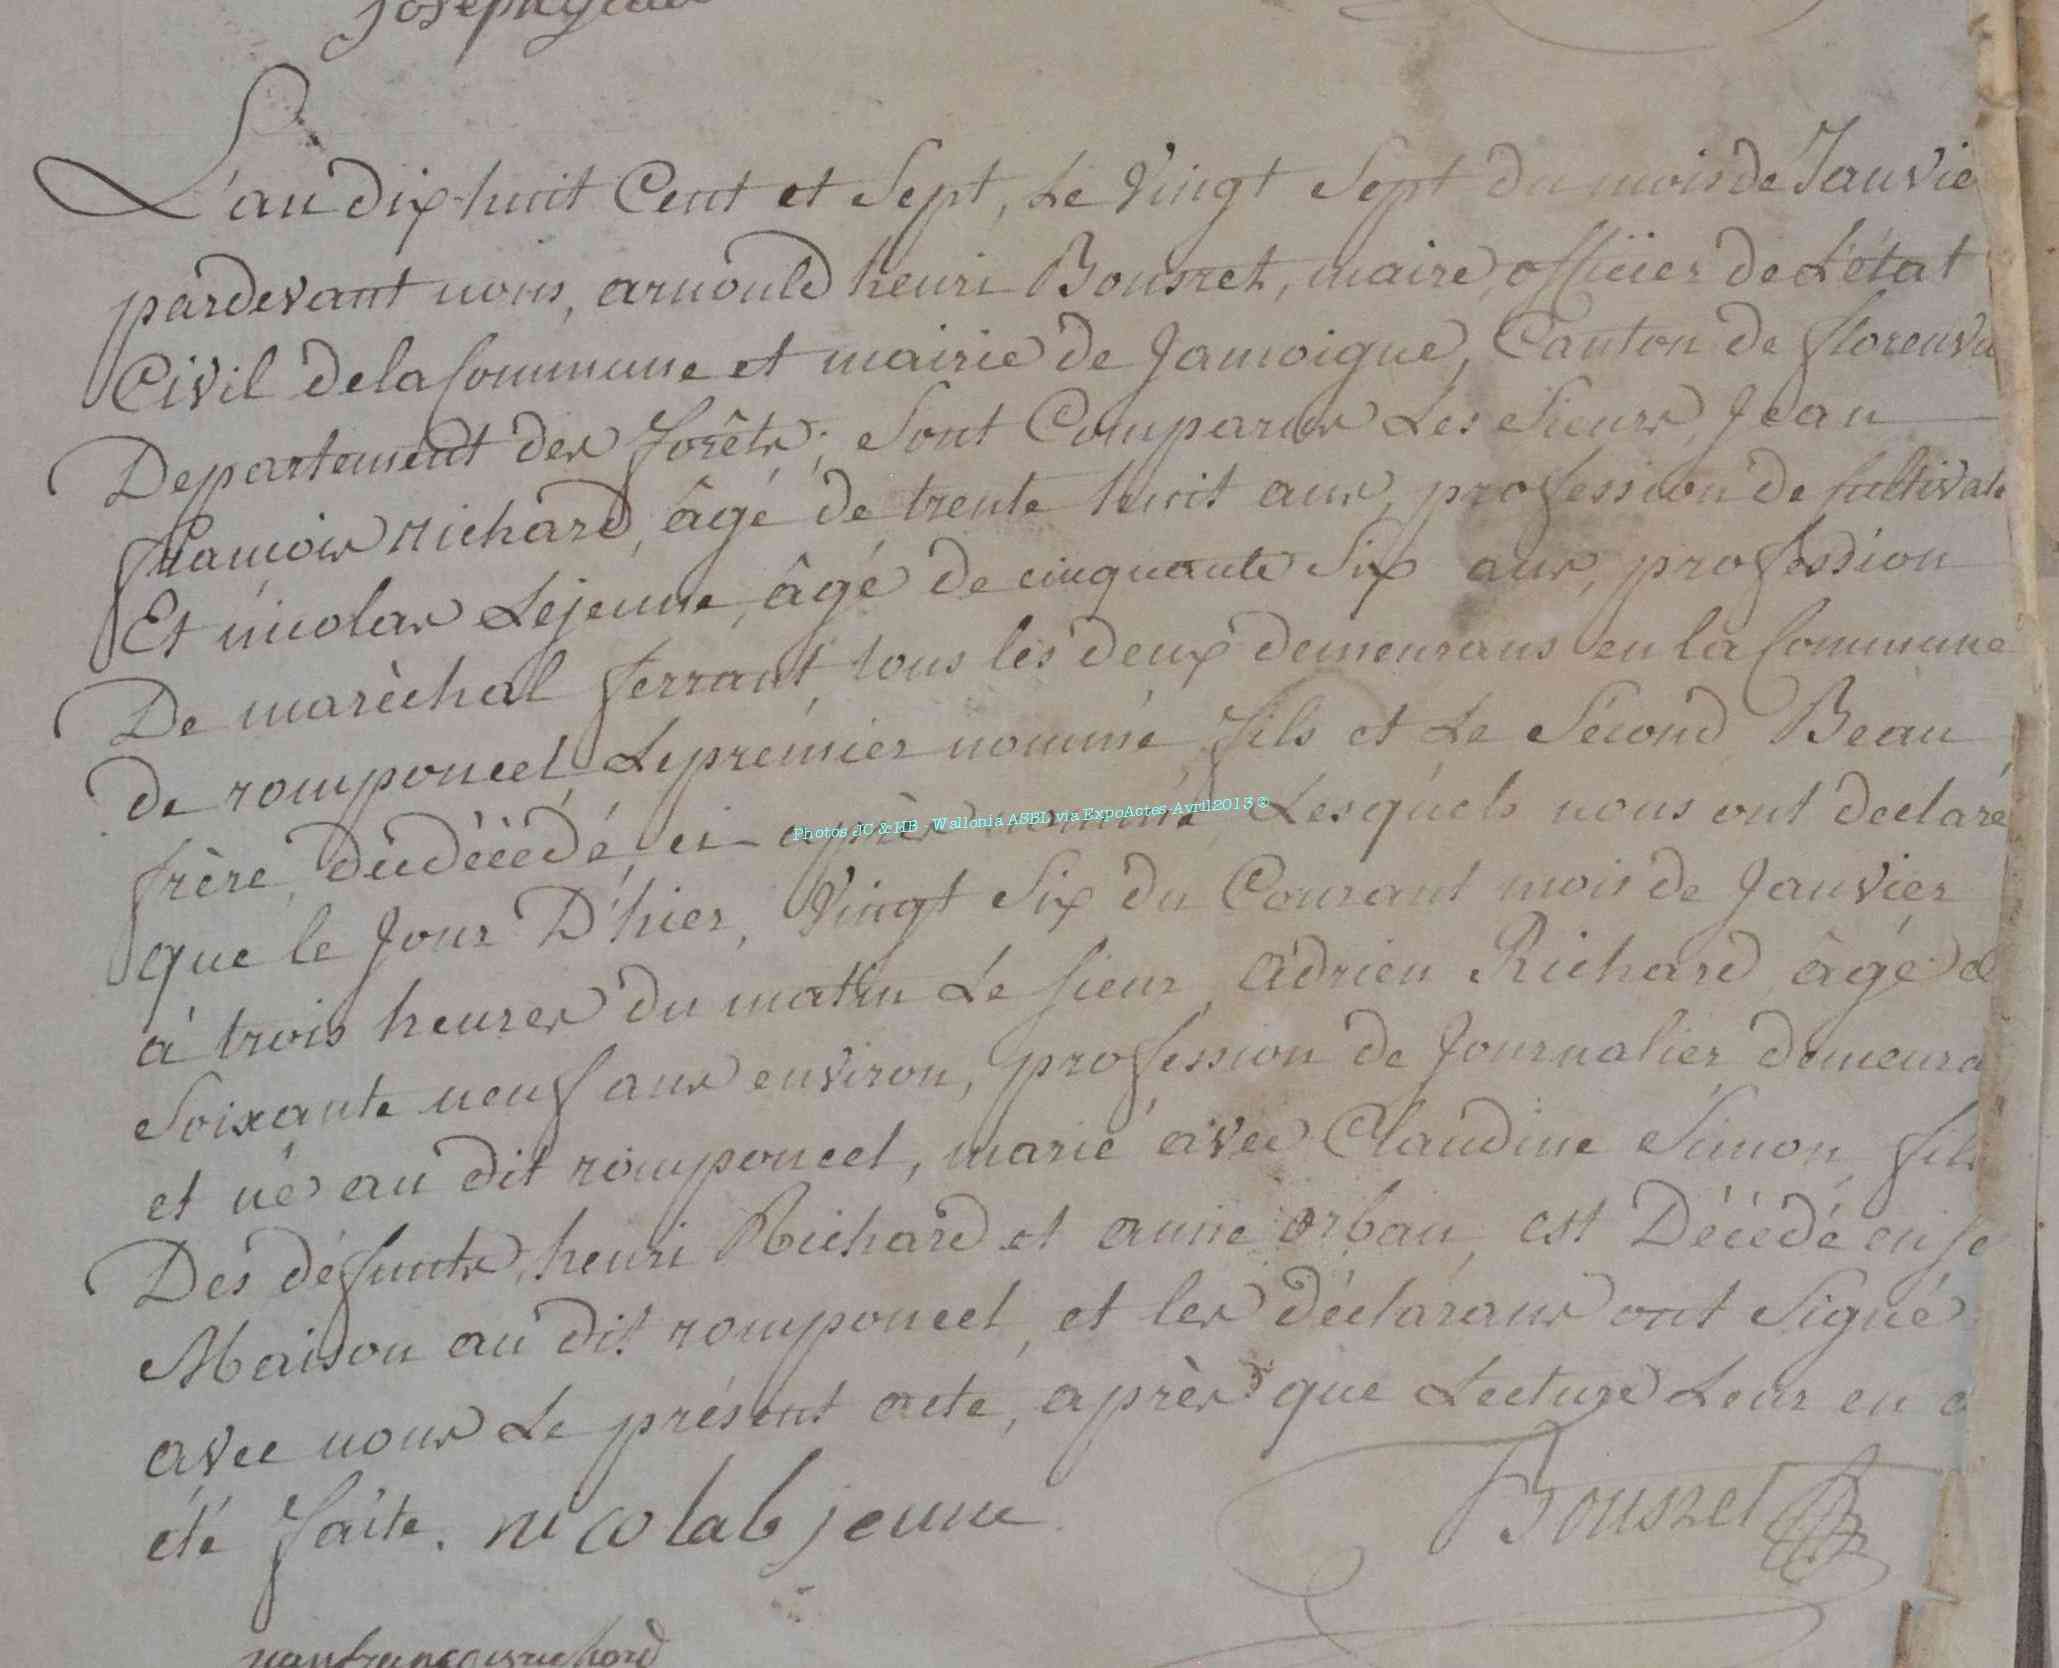 L'an dix-huit Cent et Sept, Le Vingt Sept du mois de Janvie
pardevant nous, arnould henri Bousret, maire, officier de L'état
Civil de la Commune et mairie de Jamoigne, Canton de florenv
Departement des forêts; Sont Comparus Les Sieurs Jean
francois Richard, âgé de trente huit ans, profession de Cultivate
Et nicolas Lejeune, âgé de cinquante Six ans, profession
De marèchal ferrant, tous les deux demeurans en la Commune
de romponcel Le premier nommé fils et Le Sécond Beau
frère, du dècédé, ci-après nommé, Lesquels nous ont declaré
Photos JC & HB, Wallonia ASBL via ExpoActes-Avril2013 ©
que le Jour D'hier, Vingt Six du Courant mois de Janvier
à trois heures du matin Le Sieur Adrien Richard âgé d
Soixante neuf ans environ, profession de Journalier demeura
et né au dit romponcel, marié avec Claudine Simon, fils
Des défunts, henri Richard et anne orban, est Décédé en sa
Maison au dit romponcel, et les déclarans ont Signé
avec nous Le présent acte, après que Lecture Leur en a
été faite. nicolas lejeune
Bousret
jean francois richard